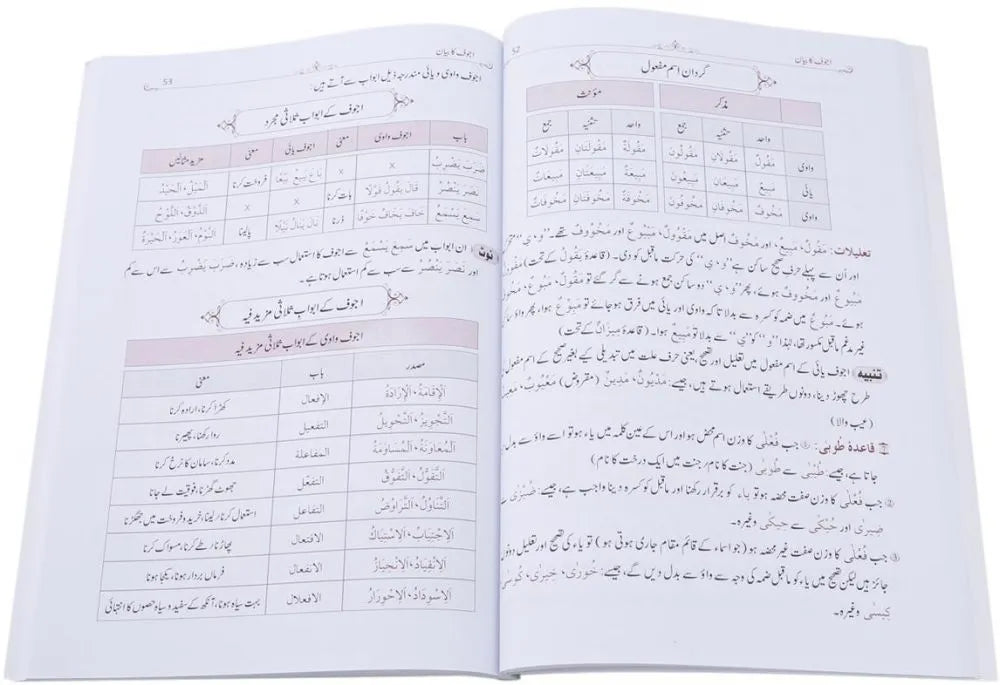 52 اجوف کا بیان
گردان اسم مفعول
مذکر مؤنث
واحد تثنیہ جمع واحد تثنیہ جمع
واوی مَقُوْلٌ مَقُوْلَانِ مَقُوْلُوْنَ مَقُوْلَةٌ مَقُوْلَتَانِ مَقُوْلَاتٌ
یائی مَبِيْعٌ مَبِيْعَانِ مَبِيْعُوْنَ مَبِيْعَةٌ مَبِيْعَتَانِ مَبِيْعَاتٌ
واوی مَخُوْفٌ مَخُوْفَانِ مَخُوْفُوْنَ مَخُوْفَةٌ مَخُوْفَتَانِ مَخُوْفَاتٌ
تعلیلات: مَقُوْلٌ، مَبِيْعٌ، اور مَخُوْفٌ اصل میں مَقْوُوْلٌ، مَبْيُوْعٌ اور مَخْوُوْفٌ تھے۔ ”و، ي“
اور اُن سے پہلے حرف صحیح ساکن ہے ”و، ي“ کی حرکت ماقبل کو دی۔ (قاعدۂ يَقُوْلُ کے تحت)
اور مَخُوْوْفٌ ہوئے، پھر ”و، ي“ دو ساکن جمع ہونے سے گر گئے تو مَقُوْلٌ، مَبُوْعٌ،
ہوئے۔ مَبُوْعٌ میں ضمہ کو کسرہ سے بدلا تاکہ واوی اور یائی میں فرق ہو جائے تو مَبِوْعٌ ہوا، پھر واؤ
غیر مدغم ماقبل مکسور تھا، لہٰذا ”و“ کو ”ي“ سے بدلا تو مَبِيْعٌ ہوا۔ (قاعدۂ مِيْزَانٌ کے تحت)
تنبیہ اجوف یائی کے اسم مفعول میں تعلیل اور تصحیح، یعنی حرف علت میں تبدیلی کیے بغیر صحیح کے اسم مفعول
طرح چھوڑ دینا، دونوں طریقے استعمال ہوتے ہیں، جیسے: مَدْيُوْنٌ، مَدِيْنٌ (مقروض) مَعْيُوْبٌ،
(عیب والا)
قاعدہ طُوْبٰى: ① جب فُعْلٰى کا وزن اسم محض ہو اور اس کے عین کلمہ میں یاء ہو تو اسے واؤ سے بدل
جاتا ہے، جیسے: طُيْبٰى سے طُوْبٰى (جنت کا نام/جنت میں ایک درخت کا نام)
② جب فُعْلٰى کا وزن صفت محضہ ہو تو یاء کو برقرار رکھنا اور ماقبل کو کسرہ دینا واجب ہے، جیسے: ضُيْزٰى سے
ضِيْزٰى اور حُيْكٰى سے حِيْكٰى وغیرہ۔
③ جب فُعْلٰى کا وزن صفت غیر محضہ ہو (جو اسماء کے قائم مقام جاری ہوتی ہو) تو یاء کی تصحیح اور تعلیل دونوں
جائز ہیں لیکن تصحیح میں یاء کو ماقبل ضمہ کی وجہ سے واؤ سے بدل دیں گے، جیسے: خُوْرٰى، خِيْرٰى، كُوْسٰى
كِيْسٰى وغیرہ۔
اجوف کا بیان 53
اجوف واوی و یائی مندرجہ ذیل ابواب سے آتے ہیں:
اجوف کے ابواب ثلاثی مجرد
باب اجوف واوی معنی اجوف یائی معنی مزید مثالیں
ضَرَبَ يَضْرِبُ x x بَاعَ يَبِيْعُ بَيْعًا فروخت کرنا اَلْمَيْلُ، اَلْحَيْدُ
نَصَرَ يَنْصُرُ قَالَ يَقُوْلُ قَوْلًا بات کرنا x x اَلذَّوْقُ، اَلنَّوْحُ
سَمِعَ يَسْمَعُ خَافَ يَخَافُ خَوْفًا ڈرنا نَالَ يَنَالُ نَيْلًا پالینا اَلنَّوْمُ، اَلْعَوَرُ، اَلْحَيْرَةُ
نوٹ ان ابواب میں سَمِعَ يَسْمَعُ سے اجوف کا استعمال سب سے زیادہ، ضَرَبَ يَضْرِبُ سے اس سے کم
اور نَصَرَ يَنْصُرُ سے سب سے کم استعمال ہوتا ہے۔
اجوف کے ابواب ثلاثی مزید فیہ
اجوف واوی کے ابواب ثلاثی مزید فیہ
مصدر باب معنی
اَلْإِقَامَةُ، اَلْإِرَادَةُ الإفعال کھڑا کرنا، ارادہ کرنا
اَلتَّجْوِيْزُ، اَلتَّحْوِيْلُ التفعيل روا رکھنا، پھیرنا
اَلْمُعَاوَنَةُ، اَلْمُسَاوَمَةُ المفاعلة مدد کرنا، سامان کا نرخ کرنا
اَلتَّقَوُّلُ، اَلتَّفَوُّقُ التفعّل جھوٹ گھڑنا، فوقیت لے جانا
اَلتَّنَاوُلُ، اَلتَّرَاوُضُ التفاعل استعمال کرنا/لینا، خرید و فروخت میں جھگڑنا
اَلْاِجْتِيَابُ، اَلْاِسْتِيَاكُ الافتعال پھاڑنا/طے کرنا، مسواک کرنا
اَلْاِنْقِيَادُ، اَلْاِنْحِيَازُ الانفعال فرماں بردار ہونا، یکجا ہونا
اَلْاِسْوِدَادُ، اَلْاِحْوِرَارُ الافعلال بہت سیاہ ہونا، آنکھ کے سفید و سیاہ حصوں کا انتہائی